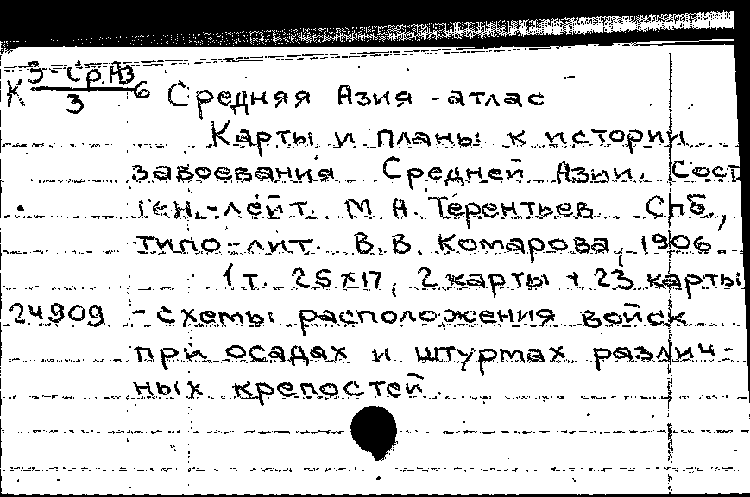 К 5-Ср.Аз/3 6 Средняя Азия - атлас
Карты и планы к истории
завоевания Средней Азии. Сост
ген.-лейт. М А. Терентьев Спб.,
типо-лит. В.В. Комарова, 1906
1 т. 25×17, 2 карты + 23 карты
24909 - схемы расположения войск
при осадах и штурмах различ-
ных крепостей.